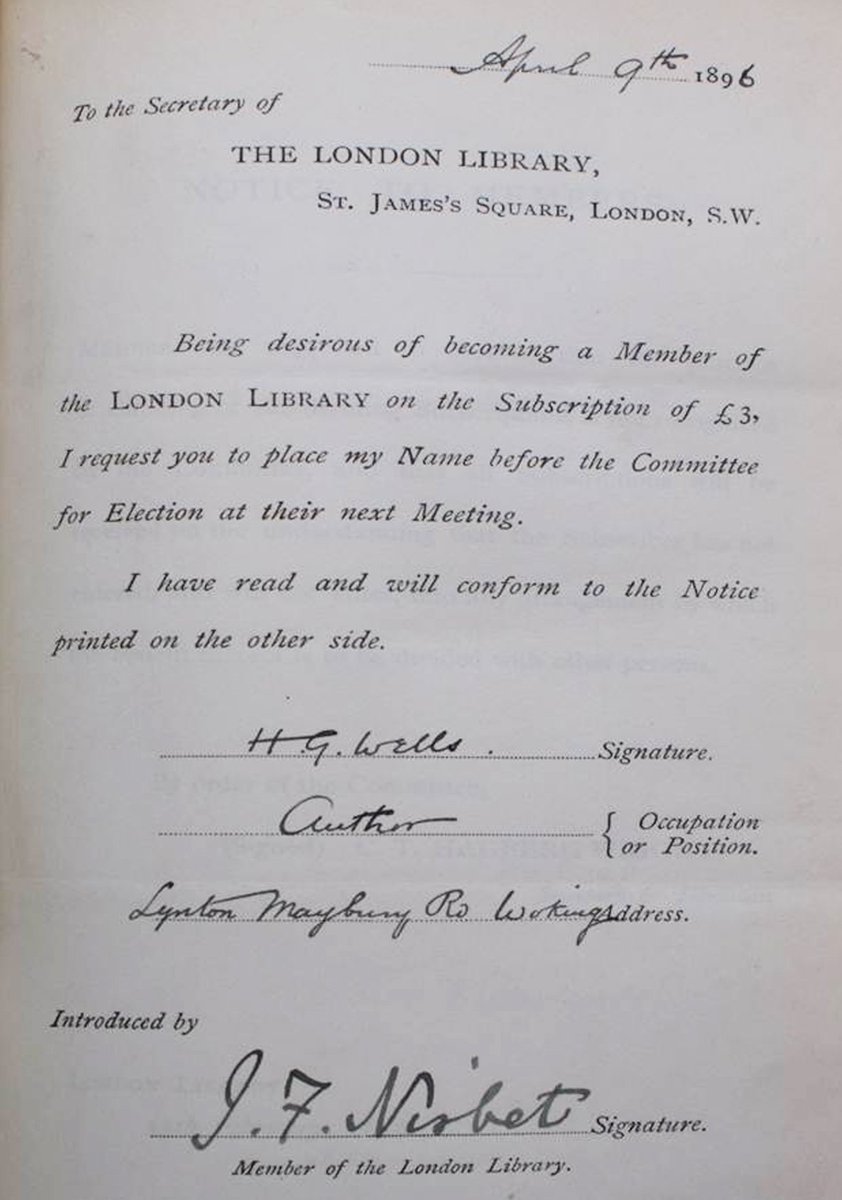 April 9th 1896
To the Secretary of
THE LONDON LIBRARY,
ST. JAMES'S SQUARE, LONDON, S.W.
Being desirous of becoming a Member of
the LONDON LIBRARY on the Subscription of £3,
I request you to place my Name before the Committee
for Election at their next Meeting.
I have read and will conform to the Notice
printed on the other side.
H.G. Wells. Signature.
Author { Occupation
or Position.
Lynton Maybury Rd Woking Address.
Introduced by
J. F. Nisbet Signature.
Member of the London Library.